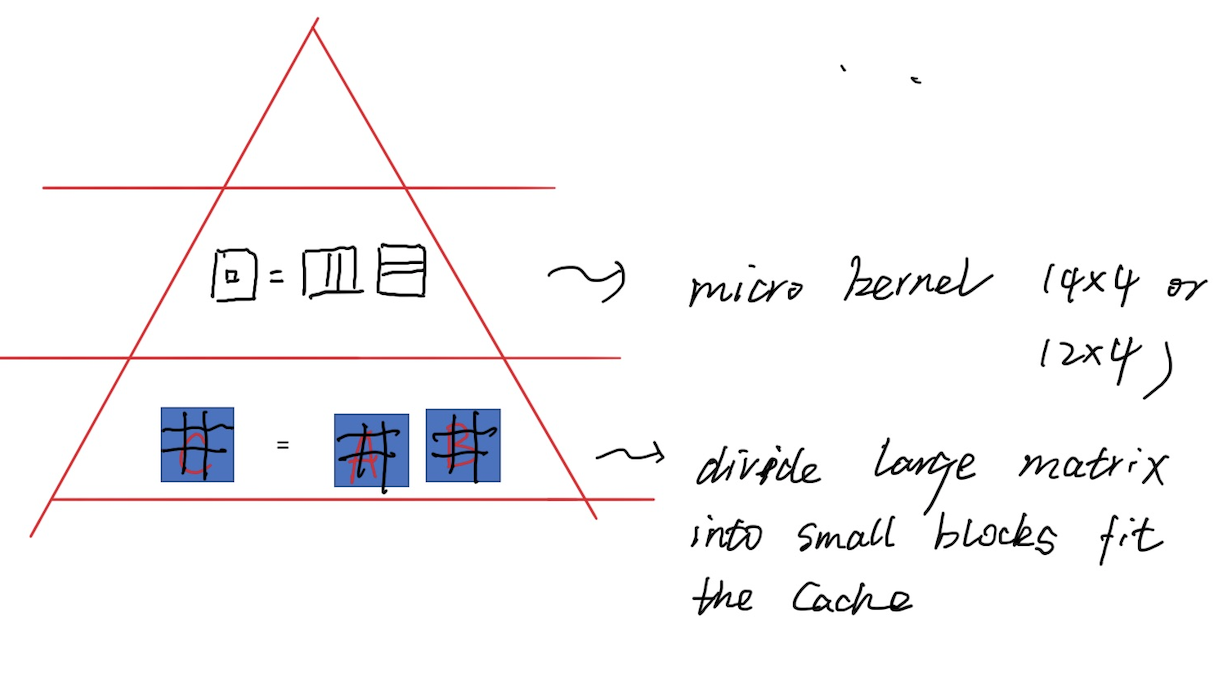 =
micro kernel 14x4 or
12x4 )
C = A B
divide large matrix
into small blocks fit
the Cache